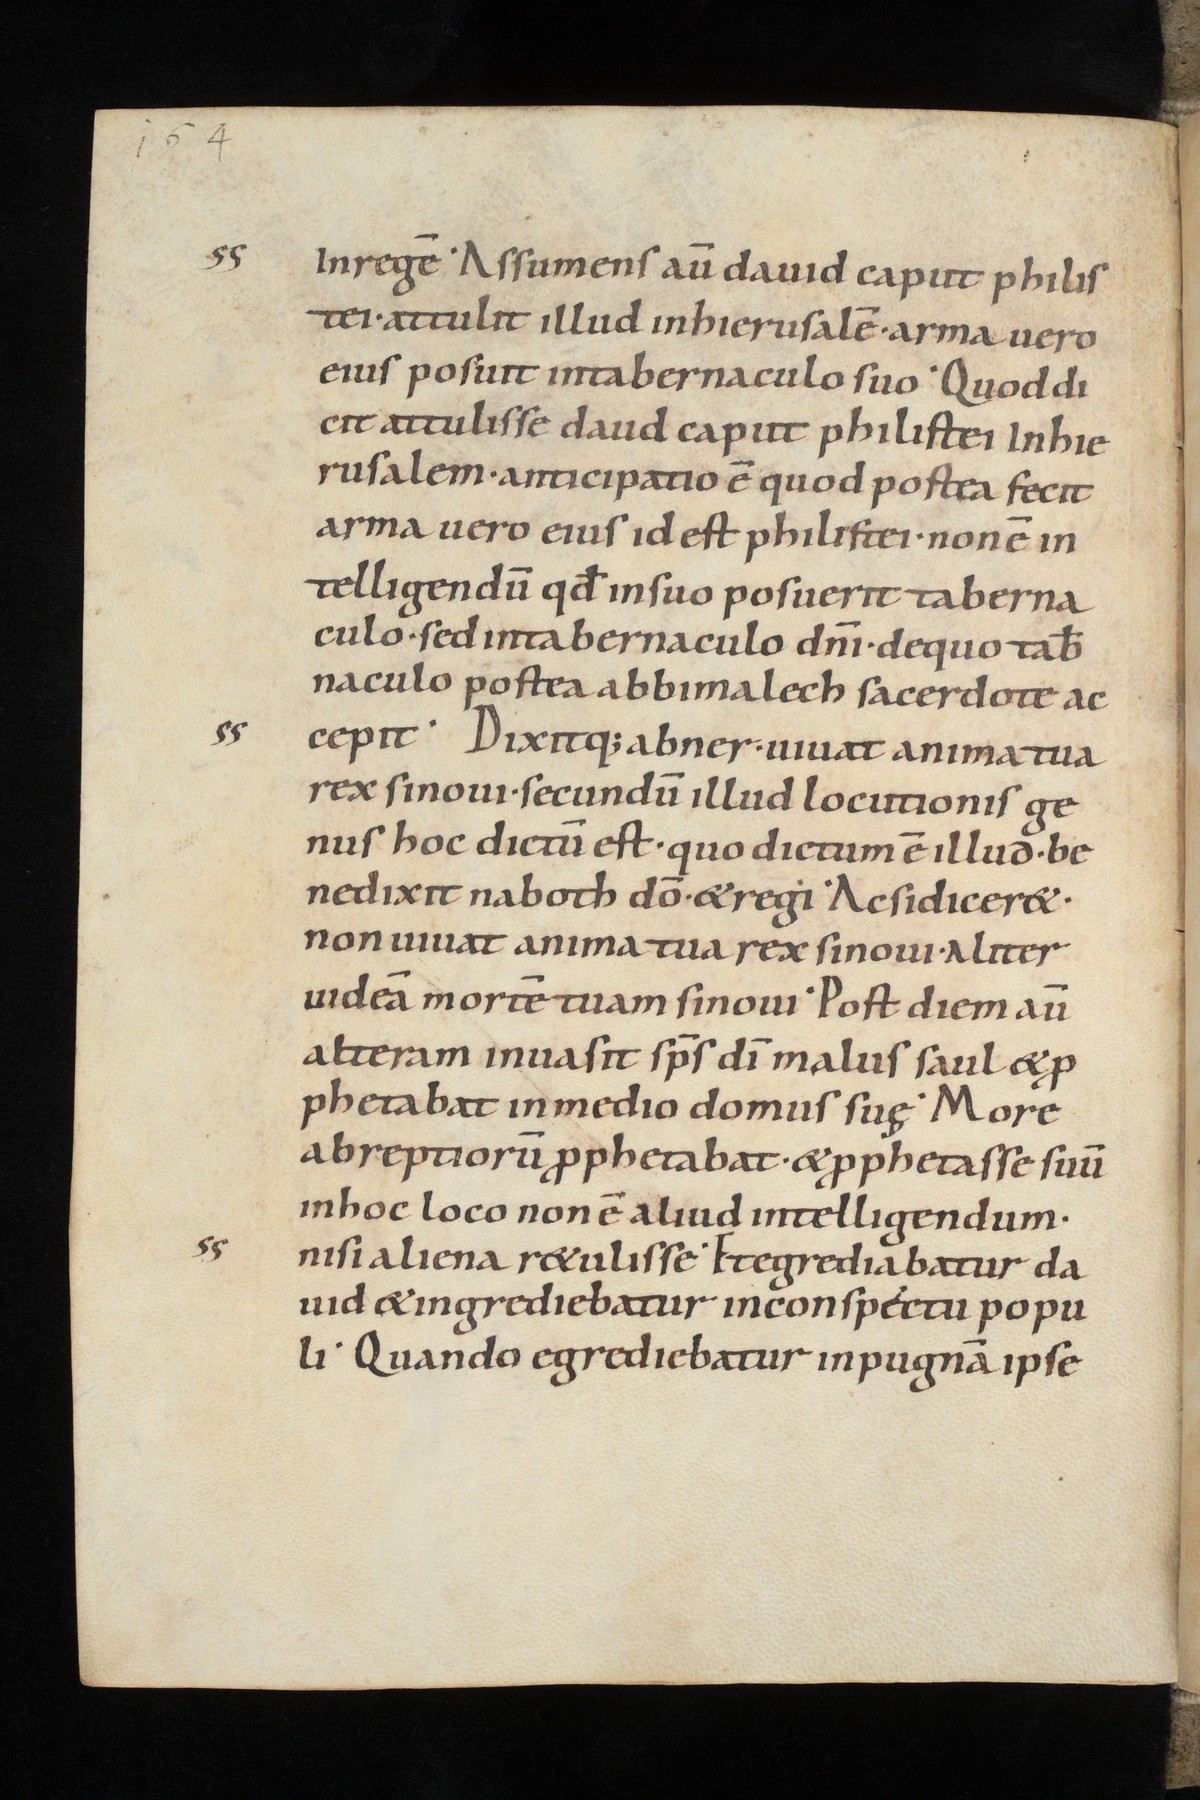 164
ss Inregē · Assumens aū dauid caput philis
tei · attulit illud inhierusalē · arma uero
eius posuit intabernaculo suo · Quoddi
cit attulisse daud caput philistei Inhie
rusalem · anticipatio ē quod postea fecit
arma uero eius id est philistei · non ē in
telligendū qđ insuo posuerit taberna
culo · sed intabernaculo dn̄i · dequo tab̄
naculo postea abbimalech sacerdote ac
ss cepit · Dixitq; abner · uiuat anima tua
rex sinoui · secundū illud locutionis ge
nus hoc dictū est · quo dictum ē illud · be
nedixit naboth dō · & regi · Acsidicer& ·
non uiuat anima tua rex sinoui · aliter
uideā mortē tuam sinoui · Post diem aū
alteram inuasit sp̄s dī malus saul & ꝓ
phetabat inmedio domus suę · More
abreptiorū ꝓphetabat · & ꝓphetasse suū
inhoc loco non ē aliud intelligendum ·
ss nisi aliena r&ulisse · Etegrediabatur da
uid & ingrediebatur inconspectu popu
li · Quando egrediebatur inpugnā ipse